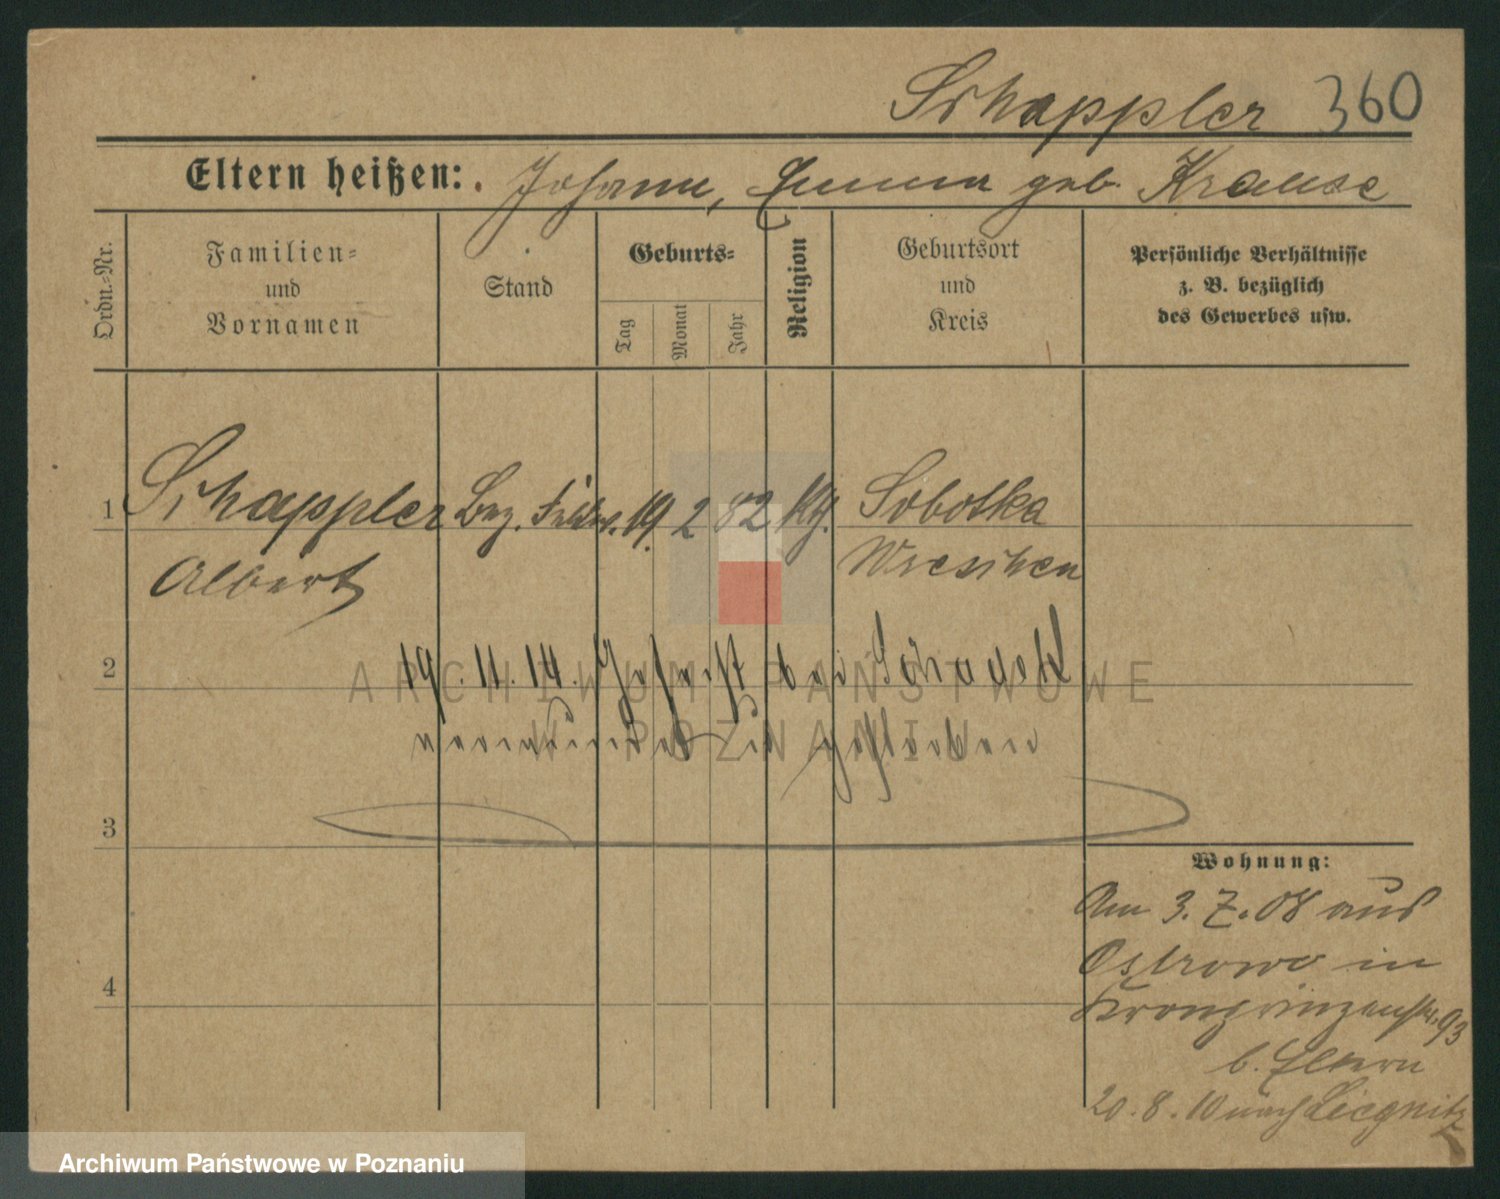 Schappler 360
Eltern heißen: Johann, Emma geb. Krause
Ordn.-Nr.
Familien-
und
Vornamen
Stand
Geburts-
Tag
Monat
Jahr
Religion
Geburtsort
und
Kreis
Persönliche Verhältnisse
z. B. bezüglich
des Gewerbes usw.
1 Schappler Bez. Feldw. 19. 2 82 Sobotka
Albert Wreschen
2 19. 11. 14. bei
ARCHIWUM PAŃSTWOWE
W POZNANIU
3
Wohnung:
Am 3. 7. 08 aus
Ostrowo in
Kronprinzenstr. 93
b. Eltern
4
20. 8. 10 nach Liegnitz
Archiwum Państwowe w Poznaniu